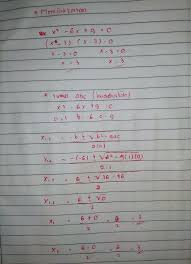 * Memfaktorkan
x² - 6x + 9 = 0
(x - 3) (x - 3) = 0
x - 3 = 0 x - 3 = 0
x = 3 x = 3
* rumus abc (kuadratik)
x² - 6x + 9 = 0
x₁,₂ = -b ± √b² - 4ac
2(a)
x₁,₂ = -(-6) ± √6² - 4(1)(9)
2.1
x₁,₂ = 6 ± √36 - 36
2
x₁,₂ = 6 ± √0
2
x₁ = 6 + 0 = 6 = 3
2 2
x₂ = 6 - 0 = 6 = 3
2 2